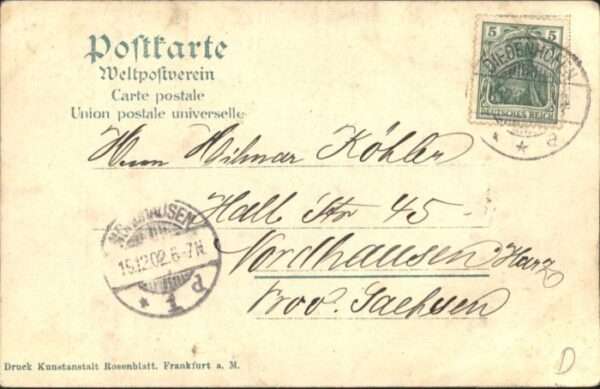 Postkarte
Weltpostverein
Carte postale
Union postale universelle
5 5
DEUTSCHES REICH
DIEDENHOFEN
* * d
Herrn Hilmar Köhler
Hall Str 45
Nordhausen Harz
Prov. Sachsen
NORDHAUSEN
15.12.02.6-7N.
* 1 d
Druck Kunstanstalt Rosenblatt. Frankfurt a. M.
D